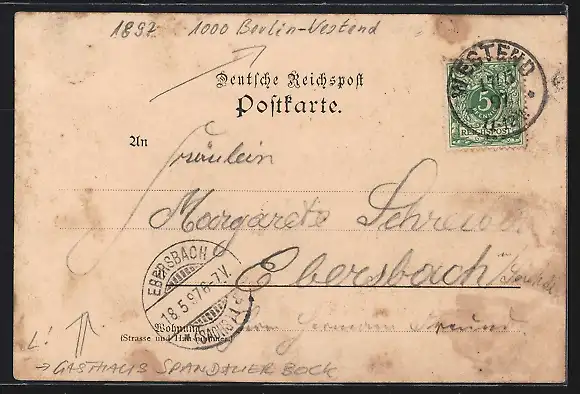 1897 1000 Berlin-Westend
Deutsche Reichspost
Postkarte.
WESTEND
5
REICHSPOST
An
Fräulein
Margarete
Ebersbach
EBERSBACH
18.5.97.6-7.V.
(SACHSEN)
Wohnung
(Strasse und Hausnummer)
L!
→ GASTHAUS SPANDAUER BOCK